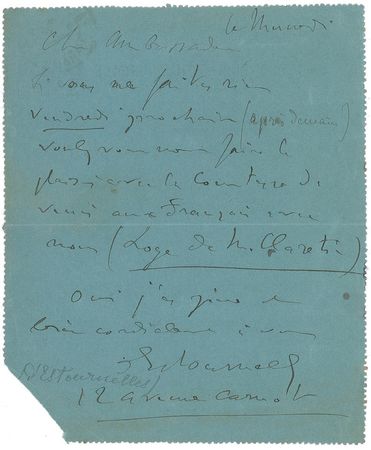 le Mercredi
Cher Ambassadeur
Si vous ne faites rien
vendredi prochain (après demain)
voulez vous nous faire le
plaisir avec la Comtesse de
venir aux Français avec
nous (Loge de M. Claretie)
Oui j'espère et
bien cordialement à vous
d'Estournelles
(D'Estournelles)
12 avenue Carnot